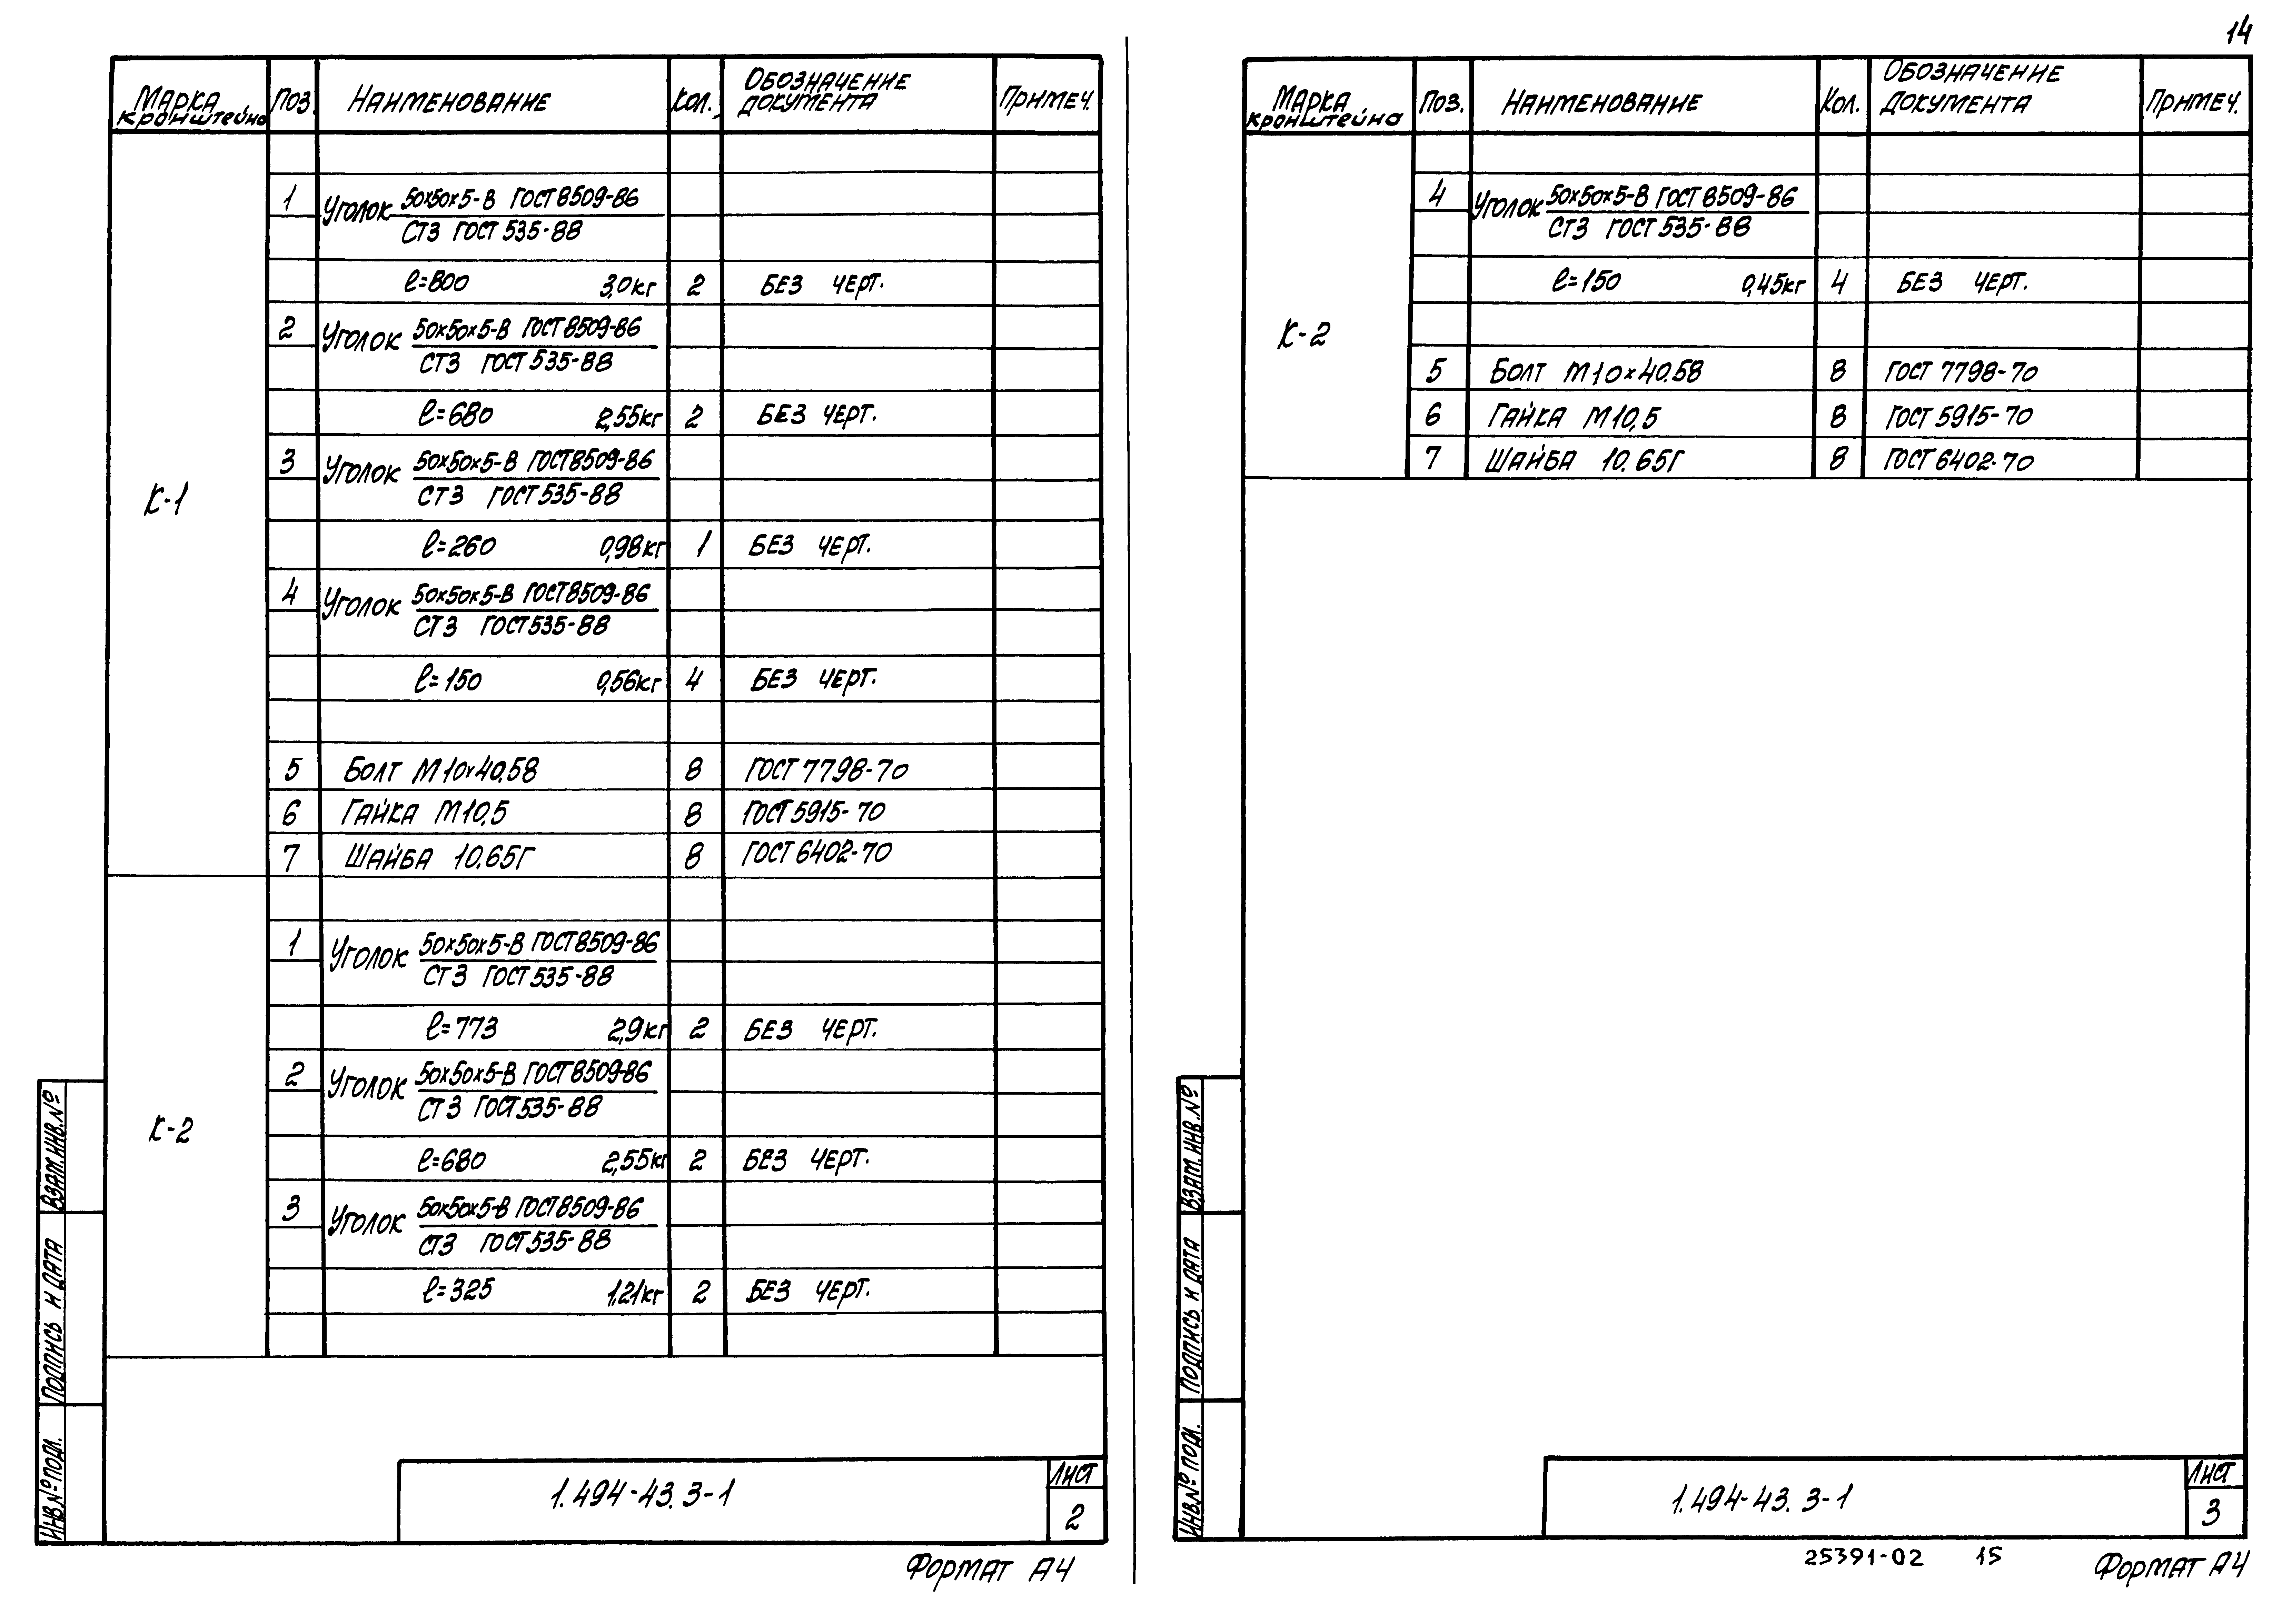 14
Марка кронштейна Поз. Наименование Кол. Обозначение документа Примеч.
К-1
1 Уголок 50х50х5-В ГОСТ 8509-86
Ст3 ГОСТ 535-88
ℓ=800 3,0кг 2 Без черт.
2 Уголок 50х50х5-В ГОСТ 8509-86
Ст3 ГОСТ 535-88
ℓ=680 2,55кг 2 Без черт.
3 Уголок 50х50х5-В ГОСТ 8509-86
Ст3 ГОСТ 535-88
ℓ=260 0,98кг 1 Без черт.
4 Уголок 50х50х5-В ГОСТ 8509-86
Ст3 ГОСТ 535-88
ℓ=150 0,56кг 4 Без черт.
5 Болт М10х40.58 8 ГОСТ 7798-70
6 Гайка М10,5 8 ГОСТ 5915-70
7 Шайба 10.65Г 8 ГОСТ 6402-70
К-2
1 Уголок 50х50х5-В ГОСТ 8509-86
Ст3 ГОСТ 535-88
ℓ=773 2,9кг 2 Без черт.
2 Уголок 50х50х5-В ГОСТ 8509-86
Ст3 ГОСТ 535-88
ℓ=680 2,55кг 2 Без черт.
3 Уголок 50х50х5-В ГОСТ 8509-86
Ст3 ГОСТ 535-88
ℓ=325 1,21кг 2 Без черт.
Взам.инв.№
Подпись и дата
Инв.№ подл.
1.494-43.3-1
Лист
2
Формат А4
Марка кронштейна Поз. Наименование Кол. Обозначение документа Примеч.
К-2
4 Уголок 50х50х5-В ГОСТ 8509-86
Ст3 ГОСТ 535-88
ℓ=150 0,45кг 4 Без черт.
5 Болт М10х40.58 8 ГОСТ 7798-70
6 Гайка М10,5 8 ГОСТ 5915-70
7 Шайба 10.65Г 8 ГОСТ 6402-70
Взам.инв.№
Подпись и дата
Инв.№ подл.
1.494-43.3-1
Лист
3
25391-02 15
Формат А4